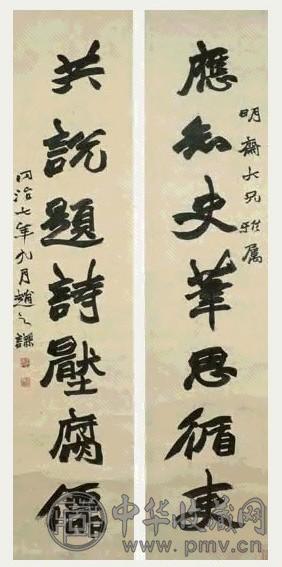 明齋大兄雅屬
應知史筆思循吏
共說題詩壓腐儒
同治七年九月趙之謙
中华收藏网
www.pmv.cn